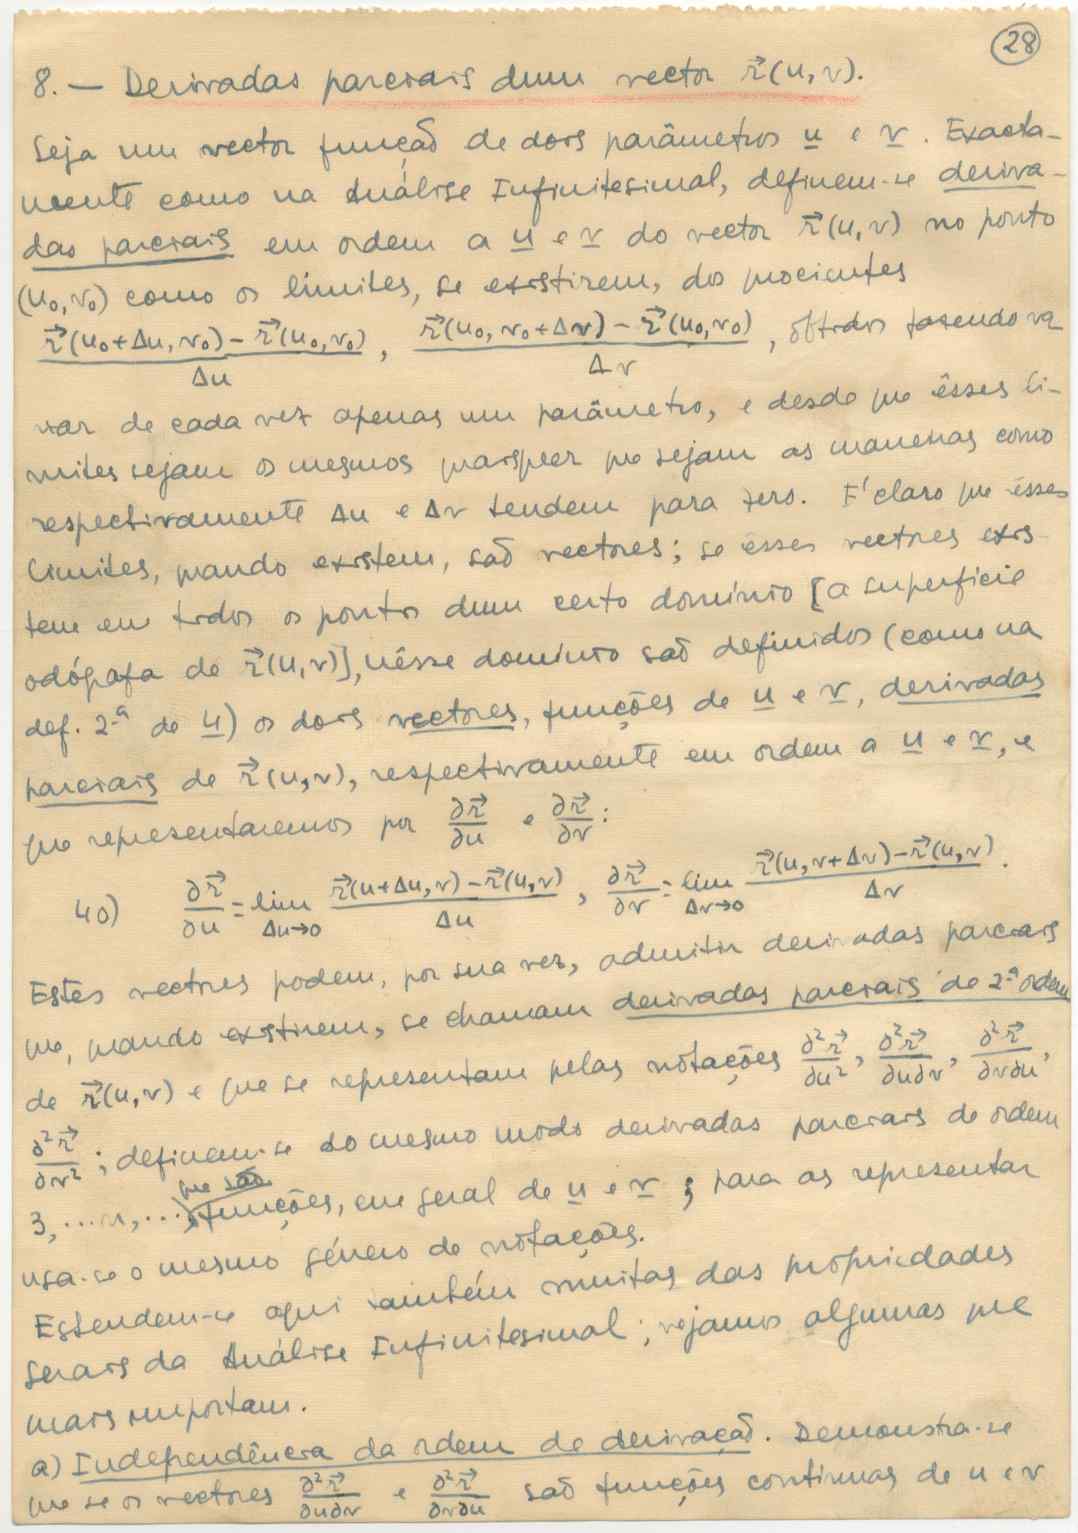 28
8. — Derivadas parciais dum vector r⃗(u, v).
Seja um vector função de dois parâmetros u e v. Exacta-
mente como na Análise Infinitesimal, definem-se deriva-
das parciais em ordem a u e v do vector r⃗(u, v) no ponto
(u₀, v₀) como os limites, se existirem, dos quocientes
(r⃗(u₀+Δu, v₀) − r⃗(u₀, v₀))/Δu , (r⃗(u₀, v₀+Δv) − r⃗(u₀, v₀))/Δv , obtidos fazendo va
riar de cada vez apenas um parâmetro, e desde que êsses li-
mites sejam os mesmos quaisquer que sejam as maneiras como
respectivamente Δu e Δv tendem para zero. E' claro que êsses
limites, quando existem, são vectores; se êsses vectores exis-
tem em todos os pontos dum certo domínio [a superfície
odógrafa de r⃗(u, v)], nêsse domínio são definidos (como na
def. 2.ª de 4) os dois vectores, funções de u e v, derivadas
parciais de r⃗(u, v), respectivamente em ordem a u e v, e
que representaremos por ∂r⃗/∂u e ∂r⃗/∂v :
40) ∂r⃗/∂u = lim Δu→0 (r⃗(u+Δu, v) − r⃗(u, v))/Δu , ∂r⃗/∂v = lim Δv→0 (r⃗(u, v+Δv) − r⃗(u, v))/Δv .
Estes vectores podem, por sua vez, admitir derivadas parciais
que, quando existirem, se chamam derivadas parciais de 2.ª ordem
de r⃗(u, v) e que se representam pelas notações ∂²r⃗/∂u², ∂²r⃗/∂u∂v, ∂²r⃗/∂v∂u,
∂²r⃗/∂v² ; definem-se do mesmo modo derivadas parciais de ordem
que são
3, ... n, ..., funções, em geral de u e v ; para as representar
usa-se o mesmo género de notações.
Estendem-se aqui também muitas das propriedades
gerais da Análise Infinitesimal; vejamos algumas que
mais importam.
a) Independência da ordem de derivação. Demonstra-se
que se os vectores ∂²r⃗/∂u∂v e ∂²r⃗/∂v∂u são funções contínuas de u e v